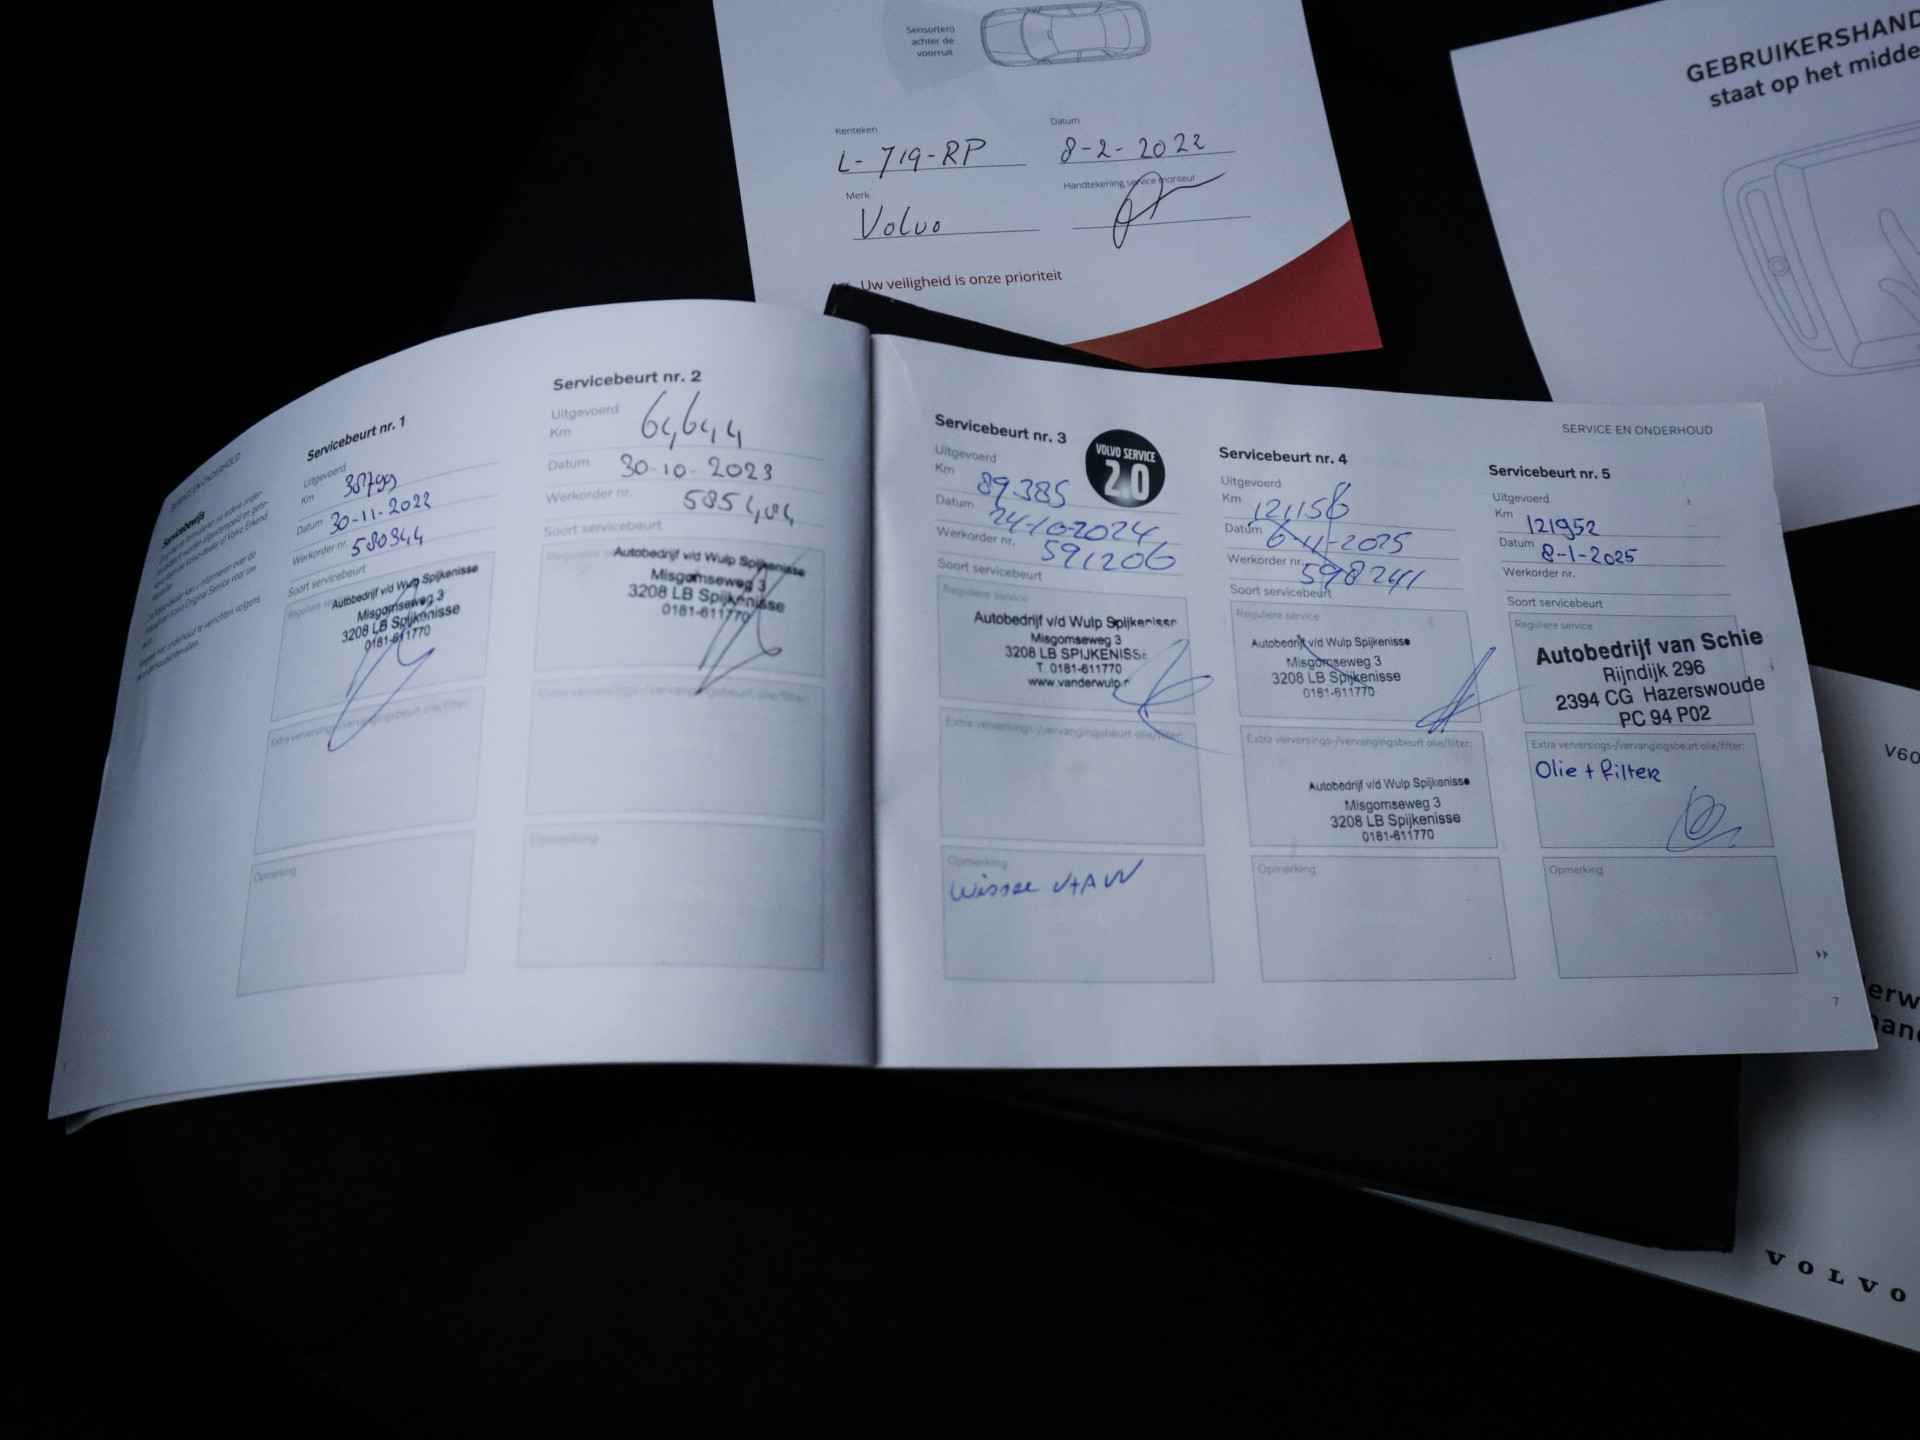 Sensor(en)
achter de
voorruit
Kenteken
L-719-RP
Datum
8-2-2022
Merk
Volvo
Handtekening service monteur
Uw veiligheid is onze prioriteit
GEBRUIKERSHAND
staat op het midde
SERVICE EN ONDERHOUD
Servicebewijs
Servicebeurt nr. 1
Uitgevoerd
Km
Datum 30-11-2022
Werkorder nr. 580944
Soort servicebeurt
Reguliere
Autobedrijf v/d Wulp Spijkenisse
Misgomseweg 3
3208 LB Spijkenisse
0181-611770
Extra verversings-/vervangingsbeurt olie/filter:
Opmerking
Servicebeurt nr. 2
Uitgevoerd
Km 64644
Datum 30-10-2023
Werkorder nr. 585484
Soort servicebeurt
Reguliere
Autobedrijf v/d Wulp Spijkenisse
Misgomseweg 3
3208 LB Spijkenisse
0181-611770
Extra verversings-/vervangingsbeurt olie/filter:
Opmerking
Servicebeurt nr. 3
VOLVO SERVICE
2.0
Uitgevoerd
Km 89385
Datum 24-10-2024
Werkorder nr. 591206
Soort servicebeurt
Reguliere service
Autobedrijf v/d Wulp Spijkenisse
Misgomseweg 3
3208 LB SPIJKENISSE
T. 0181-611770
www.vanderwulp.n
Extra verversings-/vervangingsbeurt olie/filter:
Opmerking
Servicebeurt nr. 4
Uitgevoerd
Km 121,156
Datum 6-11-2025
Werkorder nr. 598241
Soort servicebeurt
Reguliere service
Autobedrijf v/d Wulp Spijkenisse
Misgomseweg 3
3208 LB Spijkenisse
0181-611770
Extra verversings-/vervangingsbeurt olie/filter:
Autobedrijf v/d Wulp Spijkenisse
Misgomseweg 3
3208 LB Spijkenisse
0181-611770
Opmerking
SERVICE EN ONDERHOUD
Servicebeurt nr. 5
Uitgevoerd
Km 121952
Datum 8-1-2025
Werkorder nr.
Soort servicebeurt
Reguliere service
Autobedrijf van Schie
Rijndijk 296
2394 CG Hazerswoude
PC 94 P02
Extra verversings-/vervangingsbeurt olie/filter:
Olie + Filter
Opmerking
7
V60
VOLVO